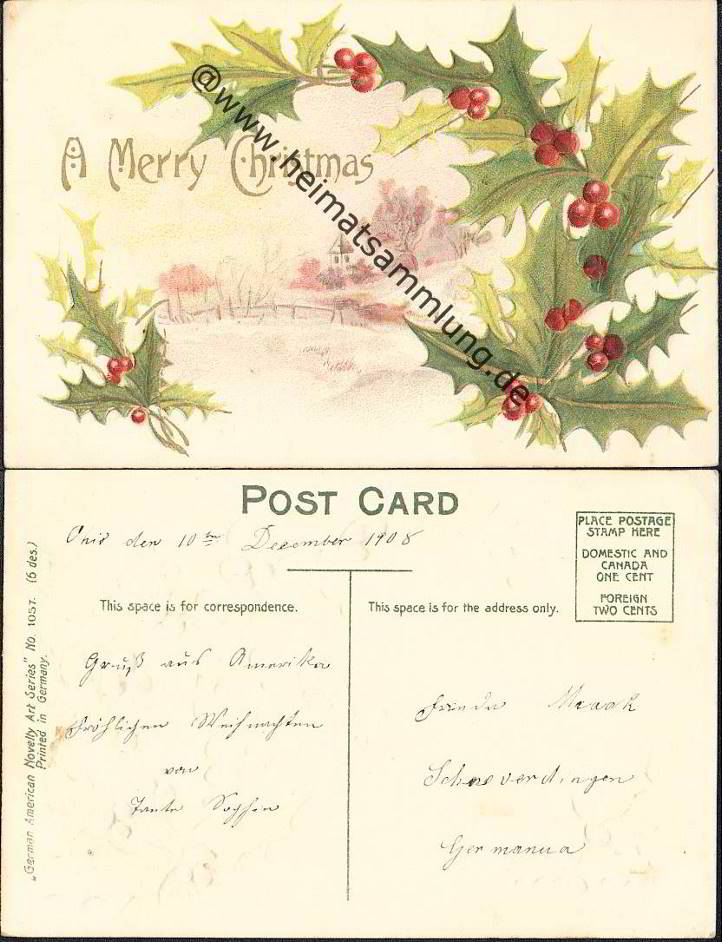 A Merry Christmas
@www.heimatsammlung.de
POST CARD
den 10ten Dezember 1908
PLACE POSTAGE
STAMP HERE
DOMESTIC AND
CANADA
ONE CENT
FOREIGN
TWO CENTS
This space is for correspondence.
This space is for the address only.
Gruß aus Amerika
Fröhlichen Weihnachten
von
Tante Sophie
Frieda Maack
Schneverdingen
Germanua
„German American Novelty Art Series" No. 1057. (6 des.)
Printed in Germany.